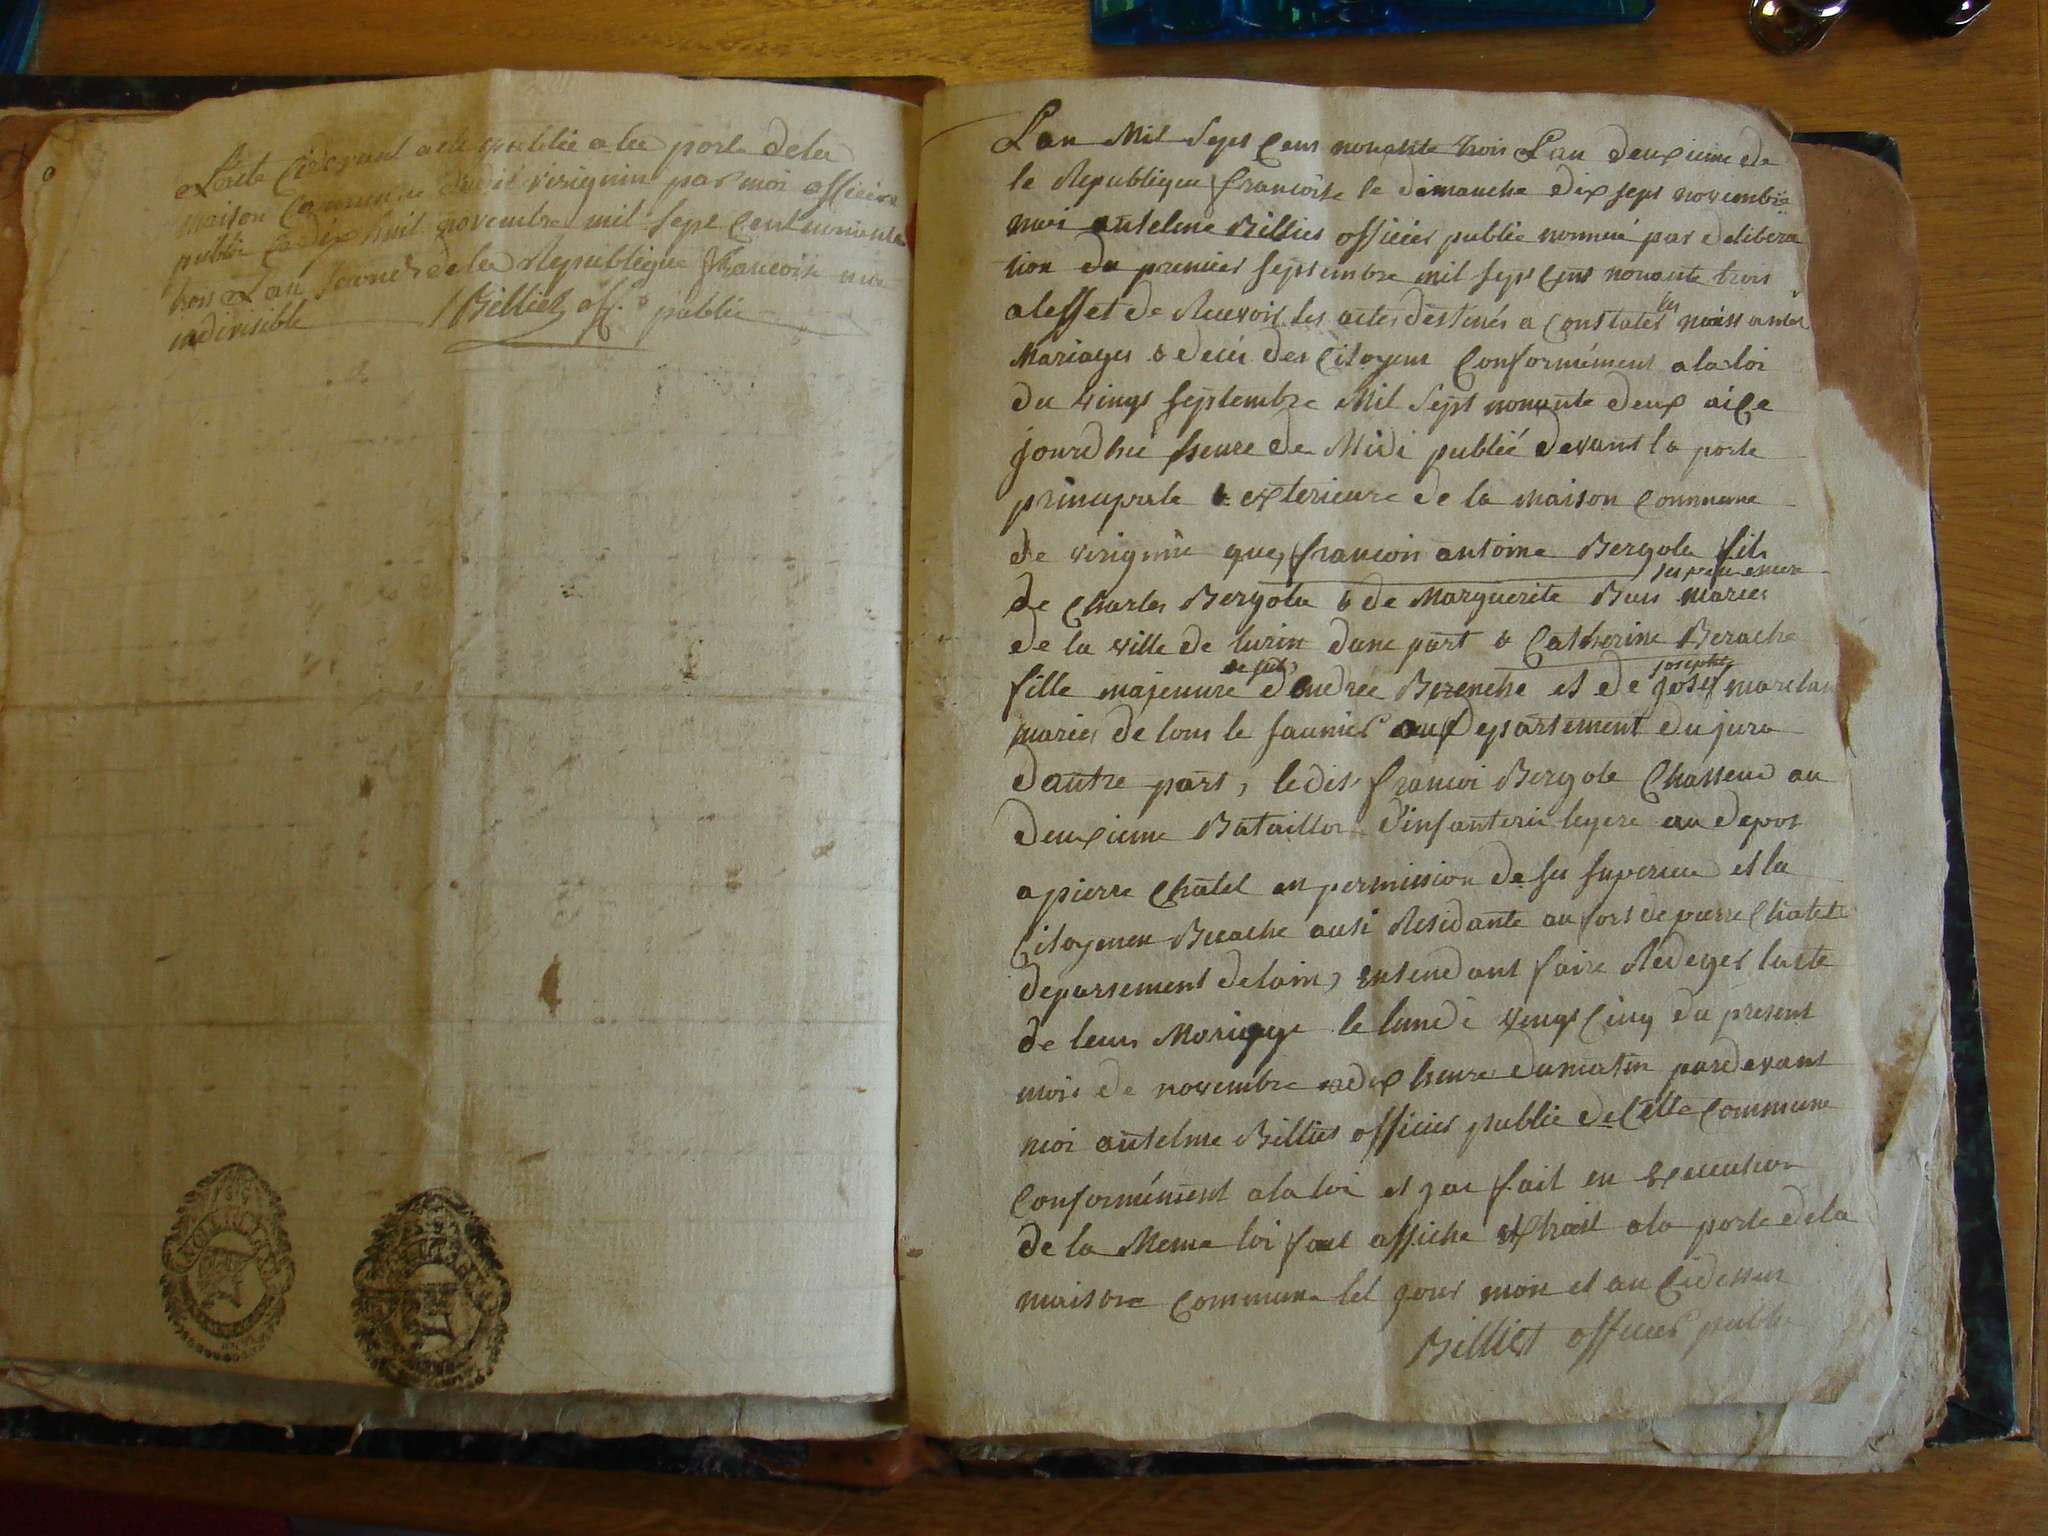 Lacte Cidevant a ete publiée a la porte dela
maison Commune dudit virignin par moi officier
public le dix huit novembre mil sept Cent nonante
trois Lan second dela Republique francoise une
indivisible Billiet off. public
Lan Mil Sept Cent nonante trois Lan deuxieme de
la Republique francoise le dimanche dix sept novembre
moi anselme Billiet officier public nommé par delibera
tion du premier septembre mil sept Cent nonante trois
a leffet de Recevoir les actes destinés a Constater les naissances
Mariages & decés des Citoyens Conformément a la loi
du vingt septembre Mil Sept nonante deux ai Ce
jourdhui heure de Midi publié devant la porte
principale & exterieure de la maison Commune
de virignin que francois antoine Bergola fils
de Charles Bergola & de Marguerite Buis mariés
de la ville de turin dune part & Catherine Berache
fille majeure dandrée et de josephe
mariés de lons le saunier au Departement du jura
dautre part, ledit francoi Bergola Chasseur au
deuxieme Bataillon d'infanterie legere au depot
a pierre Chatel en permission de ses superieur et la
Citoyenne Berache ausi Residante au fort de pierre Chatel
departement delain, entendant faire Rediger lacte
de leur Mariage le lundi vingt Cinq du présent
mois de novembre a dix heure du matin pardevant
moi anselme Billiet officier public de Cette Commune
Conformément a la loi et jai fait en Execution
de la Meme loi affiche extrait a la porte de la
maison Commune les jour mois et an Cidessus
Billiet officier public